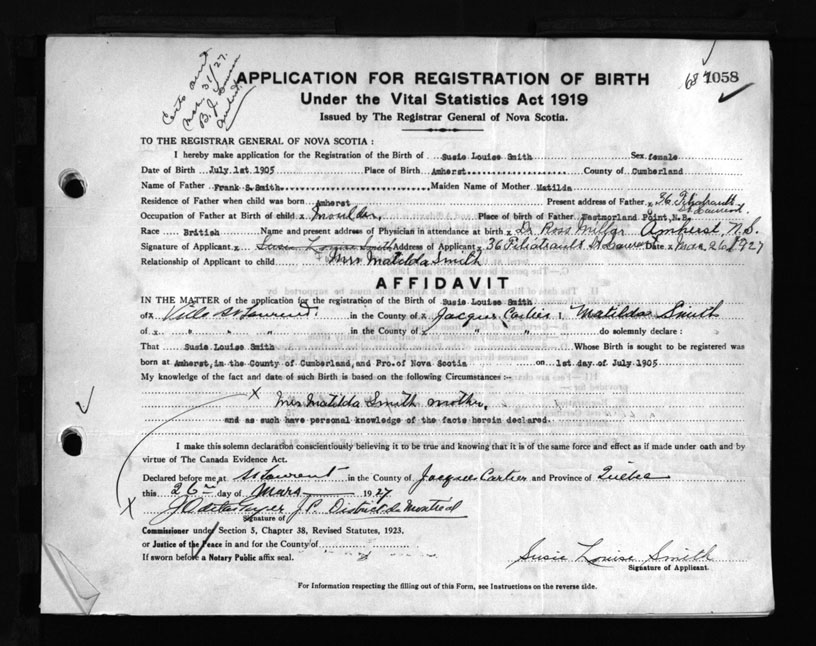 Certs sent
Mar 31/27.
B.J.
Amherst
APPLICATION FOR REGISTRATION OF BIRTH
68 1058
Under the Vital Statistics Act 1919
Issued by The Registrar General of Nova Scotia.
TO THE REGISTRAR GENERAL OF NOVA SCOTIA :
I hereby make application for the Registration of the Birth of Susie Louise Smith Sex female
Date of Birth July 1st 1905 Place of Birth Amherst County of Cumberland
Name of Father Frank S. Smith. Maiden Name of Mother Matilda
Residence of Father when child was born Amherst Present address of Father x 36 St Laurent.
Occupation of Father at Birth of child x Moulder, Place of birth of Father Westmorland Point, N.B.
Race British Name and present address of Physician in attendance at birth x Dr Ross Millar Amherst, N.S.
Signature of Applicant x Susie Louise Smith Address of Applicant x 36 St Laurent Date x Mar 26/1927
Relationship of Applicant to child Mrs Matilda Smith
AFFIDAVIT
IN THE MATTER of the application for the registration of the Birth of Susie Louise Smith
of x Ville St Laurent. in the County of x Jacques Cartier I, Matilda Smith
of x " " " in the County of x " " do solemnly declare :
That Susie Louise Smith Whose Birth is sought to be registered was
born at Amherst, in the County of Cumberland, and Pro. of Nova Scotia on 1st day of July 1905
My knowledge of the fact and date of such Birth is based on the following Circumstances :-
x
Mrs Matilda Smith mother,
and as such have personal knowledge of the facts herein declared.
I make this solemn declaration conscientiously believing it to be true and knowing that it is of the same force and effect as if made under oath and by
virtue of The Canada Evidence Act.
Declared before me, at St Laurent in the County of Jacques Cartier and Province of Quebec
this 26th day of Mars 1927
x J.P. District de Montreal
Signature of
Commissioner under Section 5, Chapter 38, Revised Statutes, 1923.
or Justice of the Peace in and for the County of
If sworn before a Notary Public affix seal.
Susie Louise Smith
Signature of Applicant.
For Information respecting the filling out of this Form, see Instructions on the reverse side.